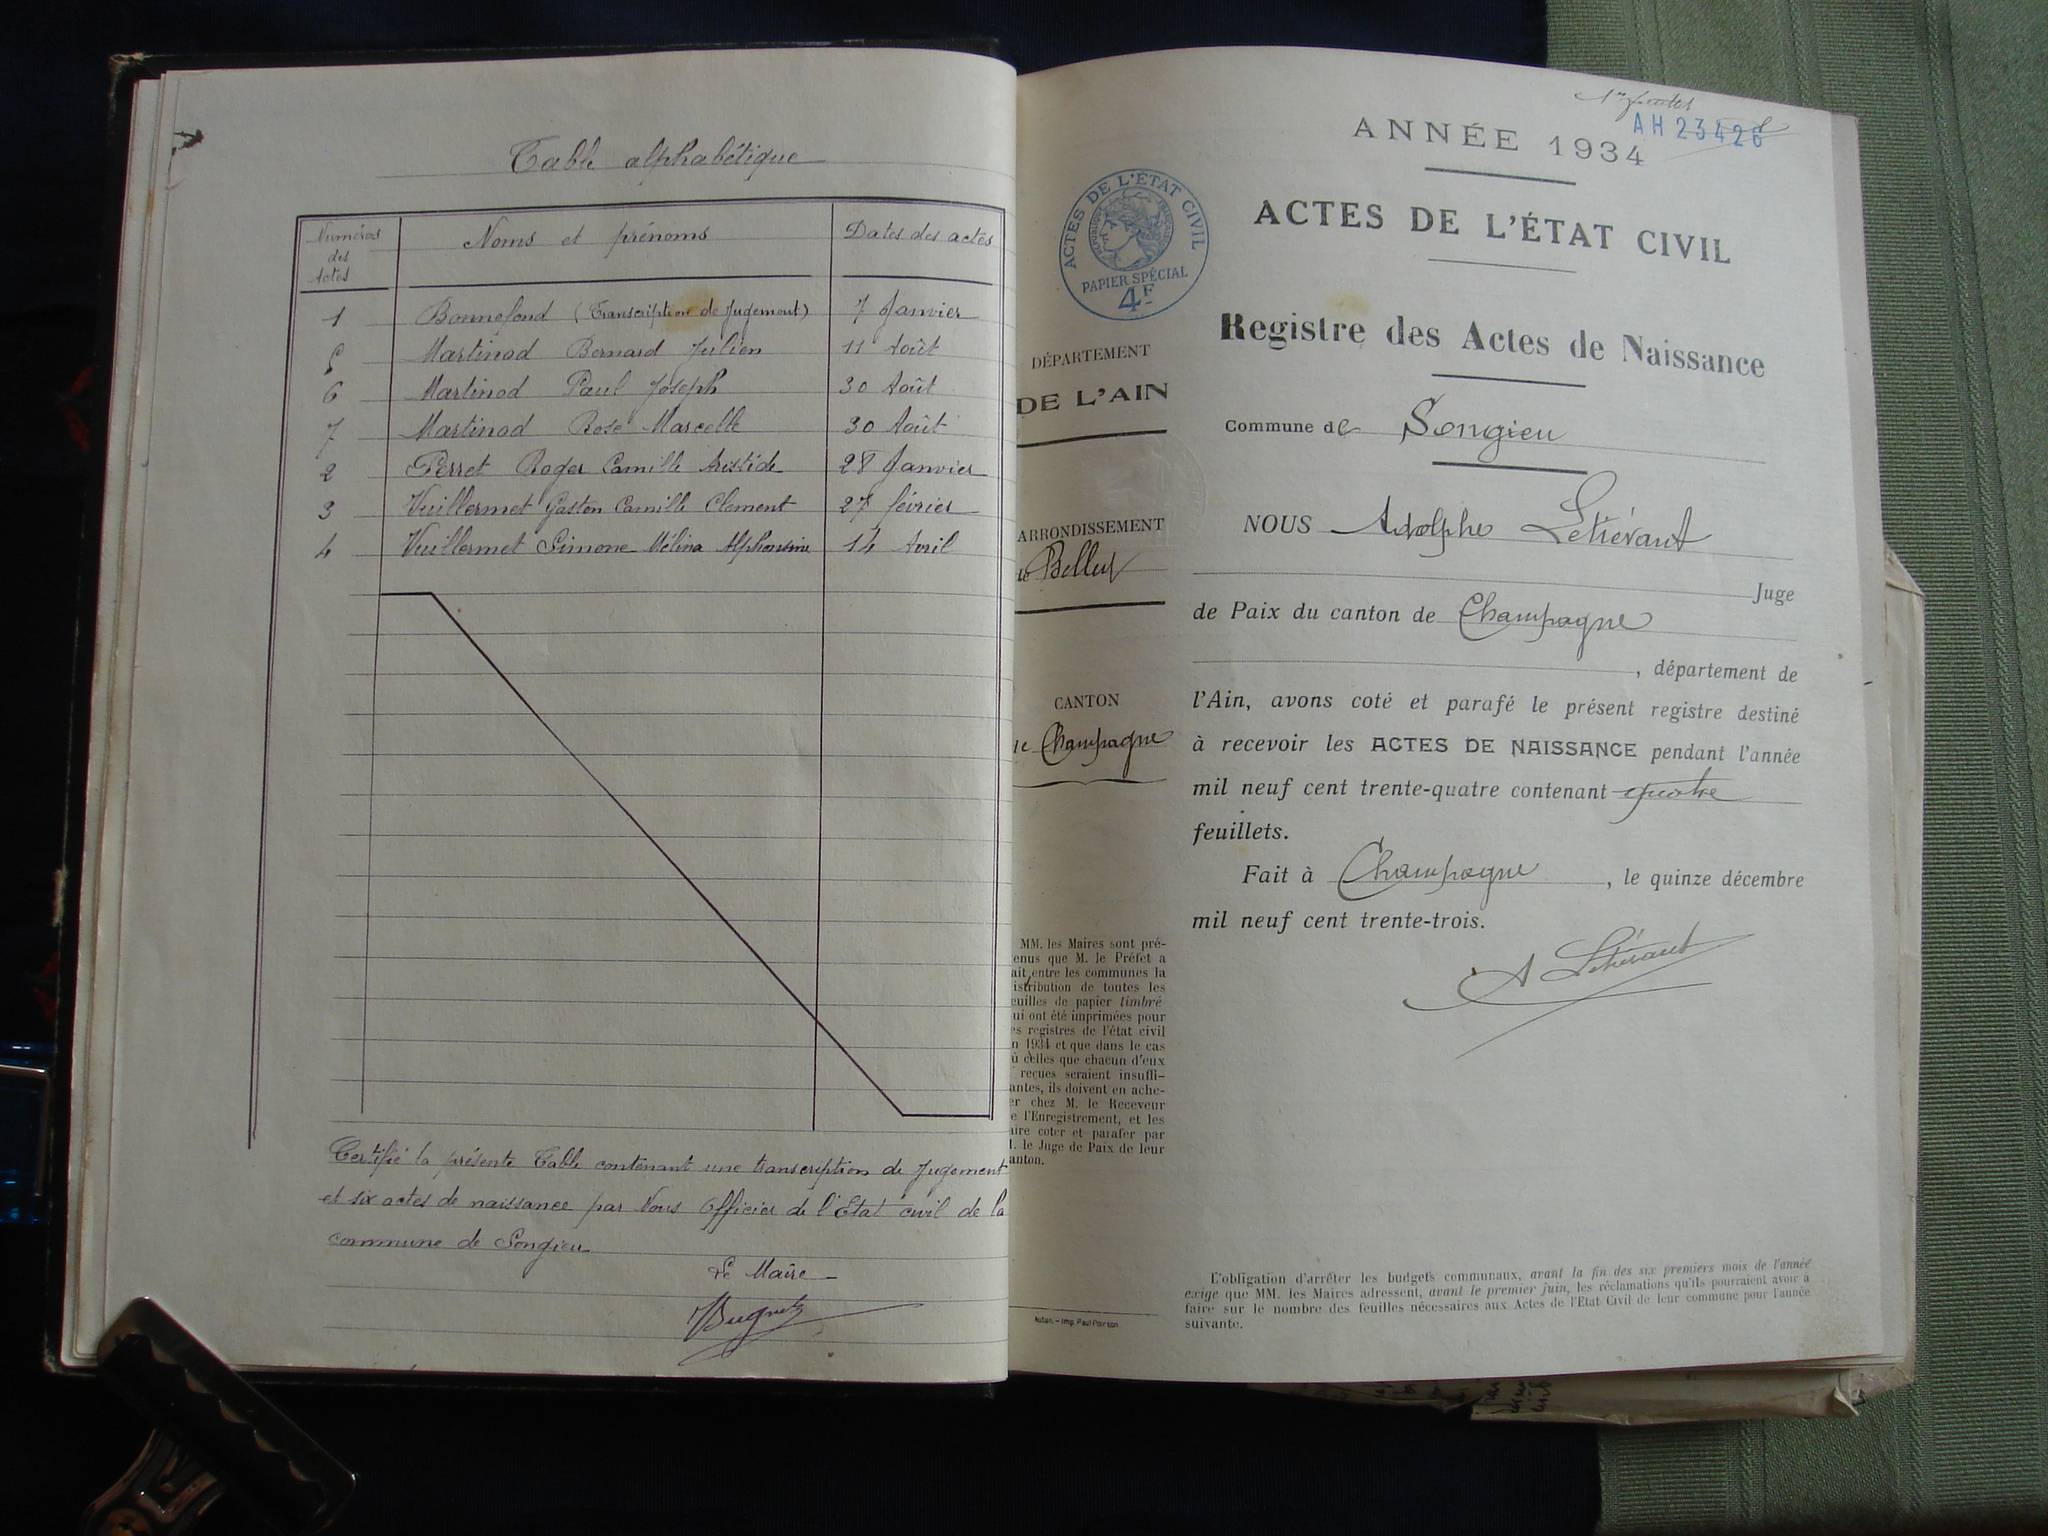 Table alphabétique
Numéros des Actes
Noms et prénoms
Dates des actes
1 Bonnefond (Transcription de Jugement) 7 Janvier
5 Martinod Bernard Julien 11 Août
6 Martinod Paul Joseph 30 Août
7 Martinod Rose Marcelle 30 Août
2 Perret Roger Camille Aristide 28 Janvier
3 Vuillermet Gaston Camille Clement 27 février
4 Vuillermet Simone Mélina Alphonsine 14 Avril
Certifié la présente Table contenant une transcription de Jugement
et six actes de naissance par Nous Officier de l'Etat civil de la
commune de Songieu
Le Maire
AH 23426
ANNÉE 1934
ACTES DE L'ÉTAT CIVIL
PAPIER SPÉCIAL
4F
ACTES DE L'ÉTAT CIVIL
Registre des Actes de Naissance
DÉPARTEMENT
DE L'AIN
Commune de Songieu
ARRONDISSEMENT
Belley
CANTON
Champagne
NOUS Adolphe Letiévant
Juge
de Paix du canton de Champagne
, département de
l'Ain, avons coté et parafé le présent registre destiné
à recevoir les ACTES DE NAISSANCE pendant l'année
mil neuf cent trente-quatre contenant quatre
feuillets.
Fait à Champagne, le quinze décembre
mil neuf cent trente-trois.
A Letiévant
MM. les Maires sont pré-
enus que M. le Préfet a
ait entre les communes la
istribution de toutes les
euilles de papier timbré
ui ont été imprimées pour
es registres de l'état civil
n 1934 et que dans le cas
ù celles que chacun d'eux
reçues seraient insuffi-
antes, ils doivent en ache-
er chez M. le Receveur
e l'Enregistrement, et les
aire coter et parafer par
. le Juge de Paix de leur
anton.
Autun. - Imp. Paul Poirson
L'obligation d'arrêter les budgets communaux, avant la fin des six premiers mois de l'année
exige que MM. les Maires adressent, avant le premier juin, les réclamations qu'ils pourraient avoir à
faire sur le nombre des feuilles nécessaires aux Actes de l'Etat Civil de leur commune pour l'année
suivante.